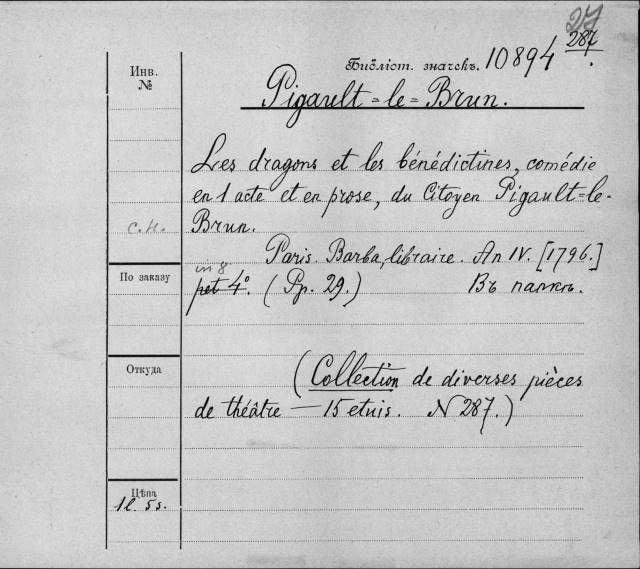 27
287.
Библіот. значекъ. 10894
Инв.
№
Pigault=le=Brun.
Les dragons et les bénédictines, comédie
en 1 acte et en prose, du Citoyen Pigault=le-
с.н. Brun.
Paris. Barba, libraire. An IV. [1796.]
in 8
По заказу
pet 4° (Pp. 29.) Въ папкѣ.
Откуда
(Collection de diverses pièces
de théâtre — 15 etuis. N 287.)
Цѣна
1l. 5s.